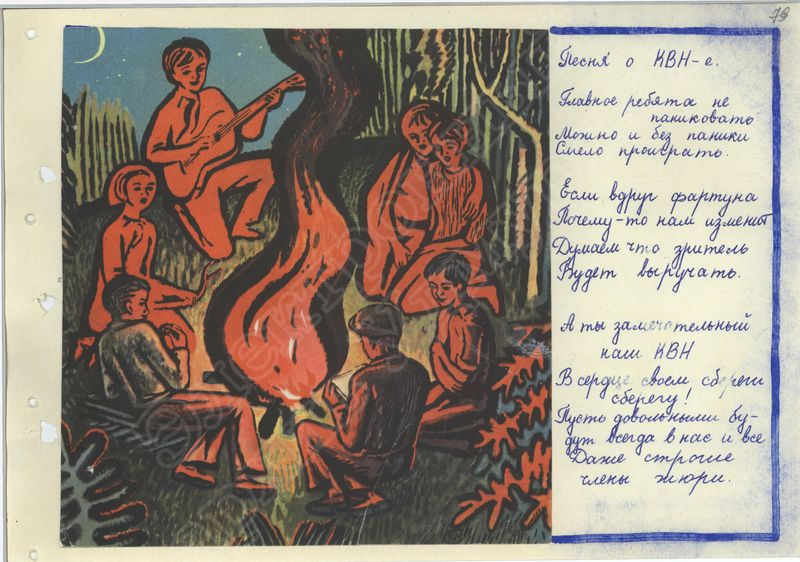 79
Песня о КВН-е.
Главное ребята не
паниковать
Можно и без паники
Смело проиграть.
Если вдруг фартуна
Почему-то нам изменит
Думаем что зритель
Будет выручать.
А ты замечательный
наш КВН
В сердце своем сбереги
сберегу!
Пусть довольными бу-
дут всегда в нас и все
Даже строгие
члены жюри.